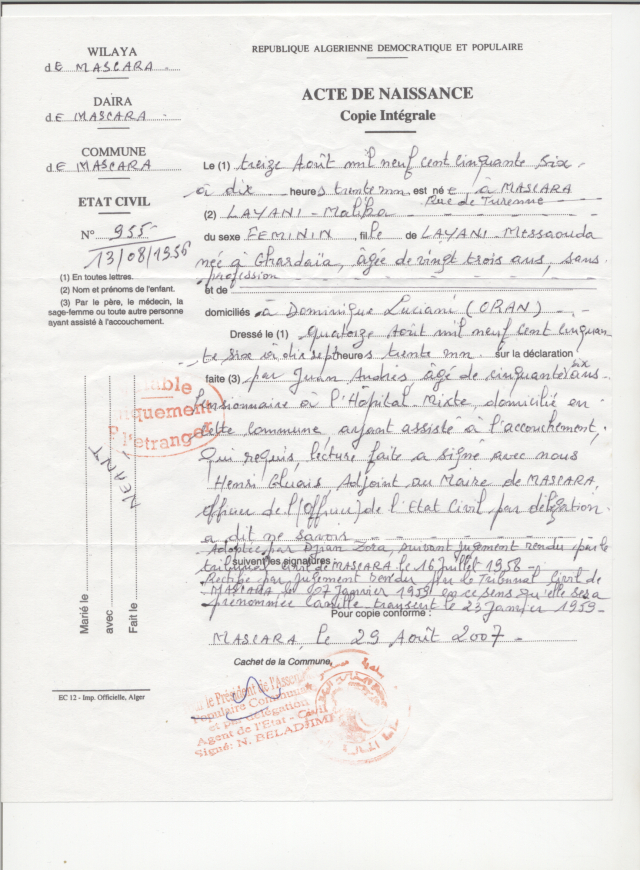 WILAYA
DE MASCARA
DAIRA
DE MASCARA
COMMUNE
DE MASCARA
ETAT CIVIL
N° 955
13/08/1956
(1) En toutes lettres.
(2) Nom et prénoms de l'enfant.
(3) Par le père, le médecin, la
sage-femme ou toute autre personne
ayant assisté à l'accouchement.
REPUBLIQUE ALGERIENNE DEMOCRATIQUE ET POPULAIRE
ACTE DE NAISSANCE
Copie Intégrale
Le (1) treize Août mil neuf cent cinquante six
à dix heures trente mn est née à MASCARA
Rue de Turenne
(2) LAYANI - Malika
du sexe FEMININ, fille de LAYANI Messaouda
née à Ghardaïa, âgée de vingt trois ans, sans
profession
et de
domiciliés à Dominique Luciani (ORAN)
Dressé le (1) quatorze Août mil neuf cent cinquan
te six à dix sept heures trente mn sur la déclaration
faite (3) par Juan Andrés, âgé de cinquante six ans
Pensionnaire à l'Hôpital Mixte, domicilié en
cette commune, ayant assisté à l'accouchement,
Qui requis, lecture faite a signé avec nous
Henri Adjoint au Maire de MASCARA,
officier de l'(Officier) de l'Etat Civil par délégation
a dit ne savoir
Adoptée par Djian Zora, suivant jugement rendu par le
suivant les signatures :
tribunal civil de MASCARA le 16 juillet 1958 -
Rectifié par jugement rendu par le Tribunal Civil de
MASCARA le 07 Janvier 1959 en ce sens qu'elle sera
prénommée Camille transcrit le 23 Janvier 1959 -
Pour copie conforme :
MASCARA, le 29 Août 2007 -
Cachet de la Commune,
le Président de l'Assem
Populaire Communale
et par délégation
Agent de l'Etat - Civil
Signé: N. BELADJIMI
uniquement
l'étranger
Marié le
avec
Fait le
NEANT
EC 12 - Imp. Officielle, Alger